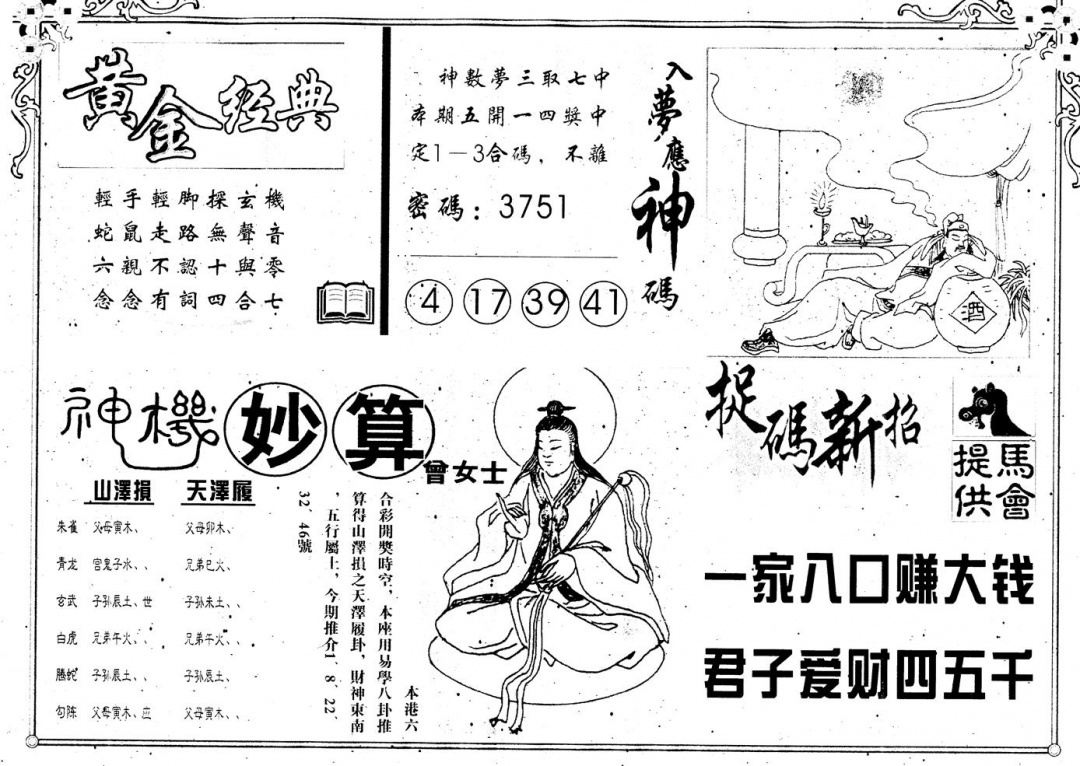 黃金經典
輕手輕脚探玄機
蛇鼠走路無聲音
六親不認十與零
念念有詞四合七
神數夢三取七中
本期五開一四獎中
定1—3合碼，不離
密碼：3751
4 17 39 41
入夢應神碼
酒
神機妙算
曾女士
山澤損 天澤履
朱雀 父母寅木、 父母卯木、
青龙 官鬼子水、、 兄弟巳火、
玄武 子孙辰土、世 子孙未土、、
白虎 兄弟午火、、 兄弟午火、、
腾蛇 子孙辰土、、 子孙辰土、
勾陈 父母寅木、应 父母寅木、、
本港六
合彩開獎時空，本座用易學八卦推
算得山澤損之天澤履卦，財神東南
，五行屬土，今期推介1、8、22、
32、46號
捉碼新招
馬會提供
一家八口赚大钱
君子爱财四五千